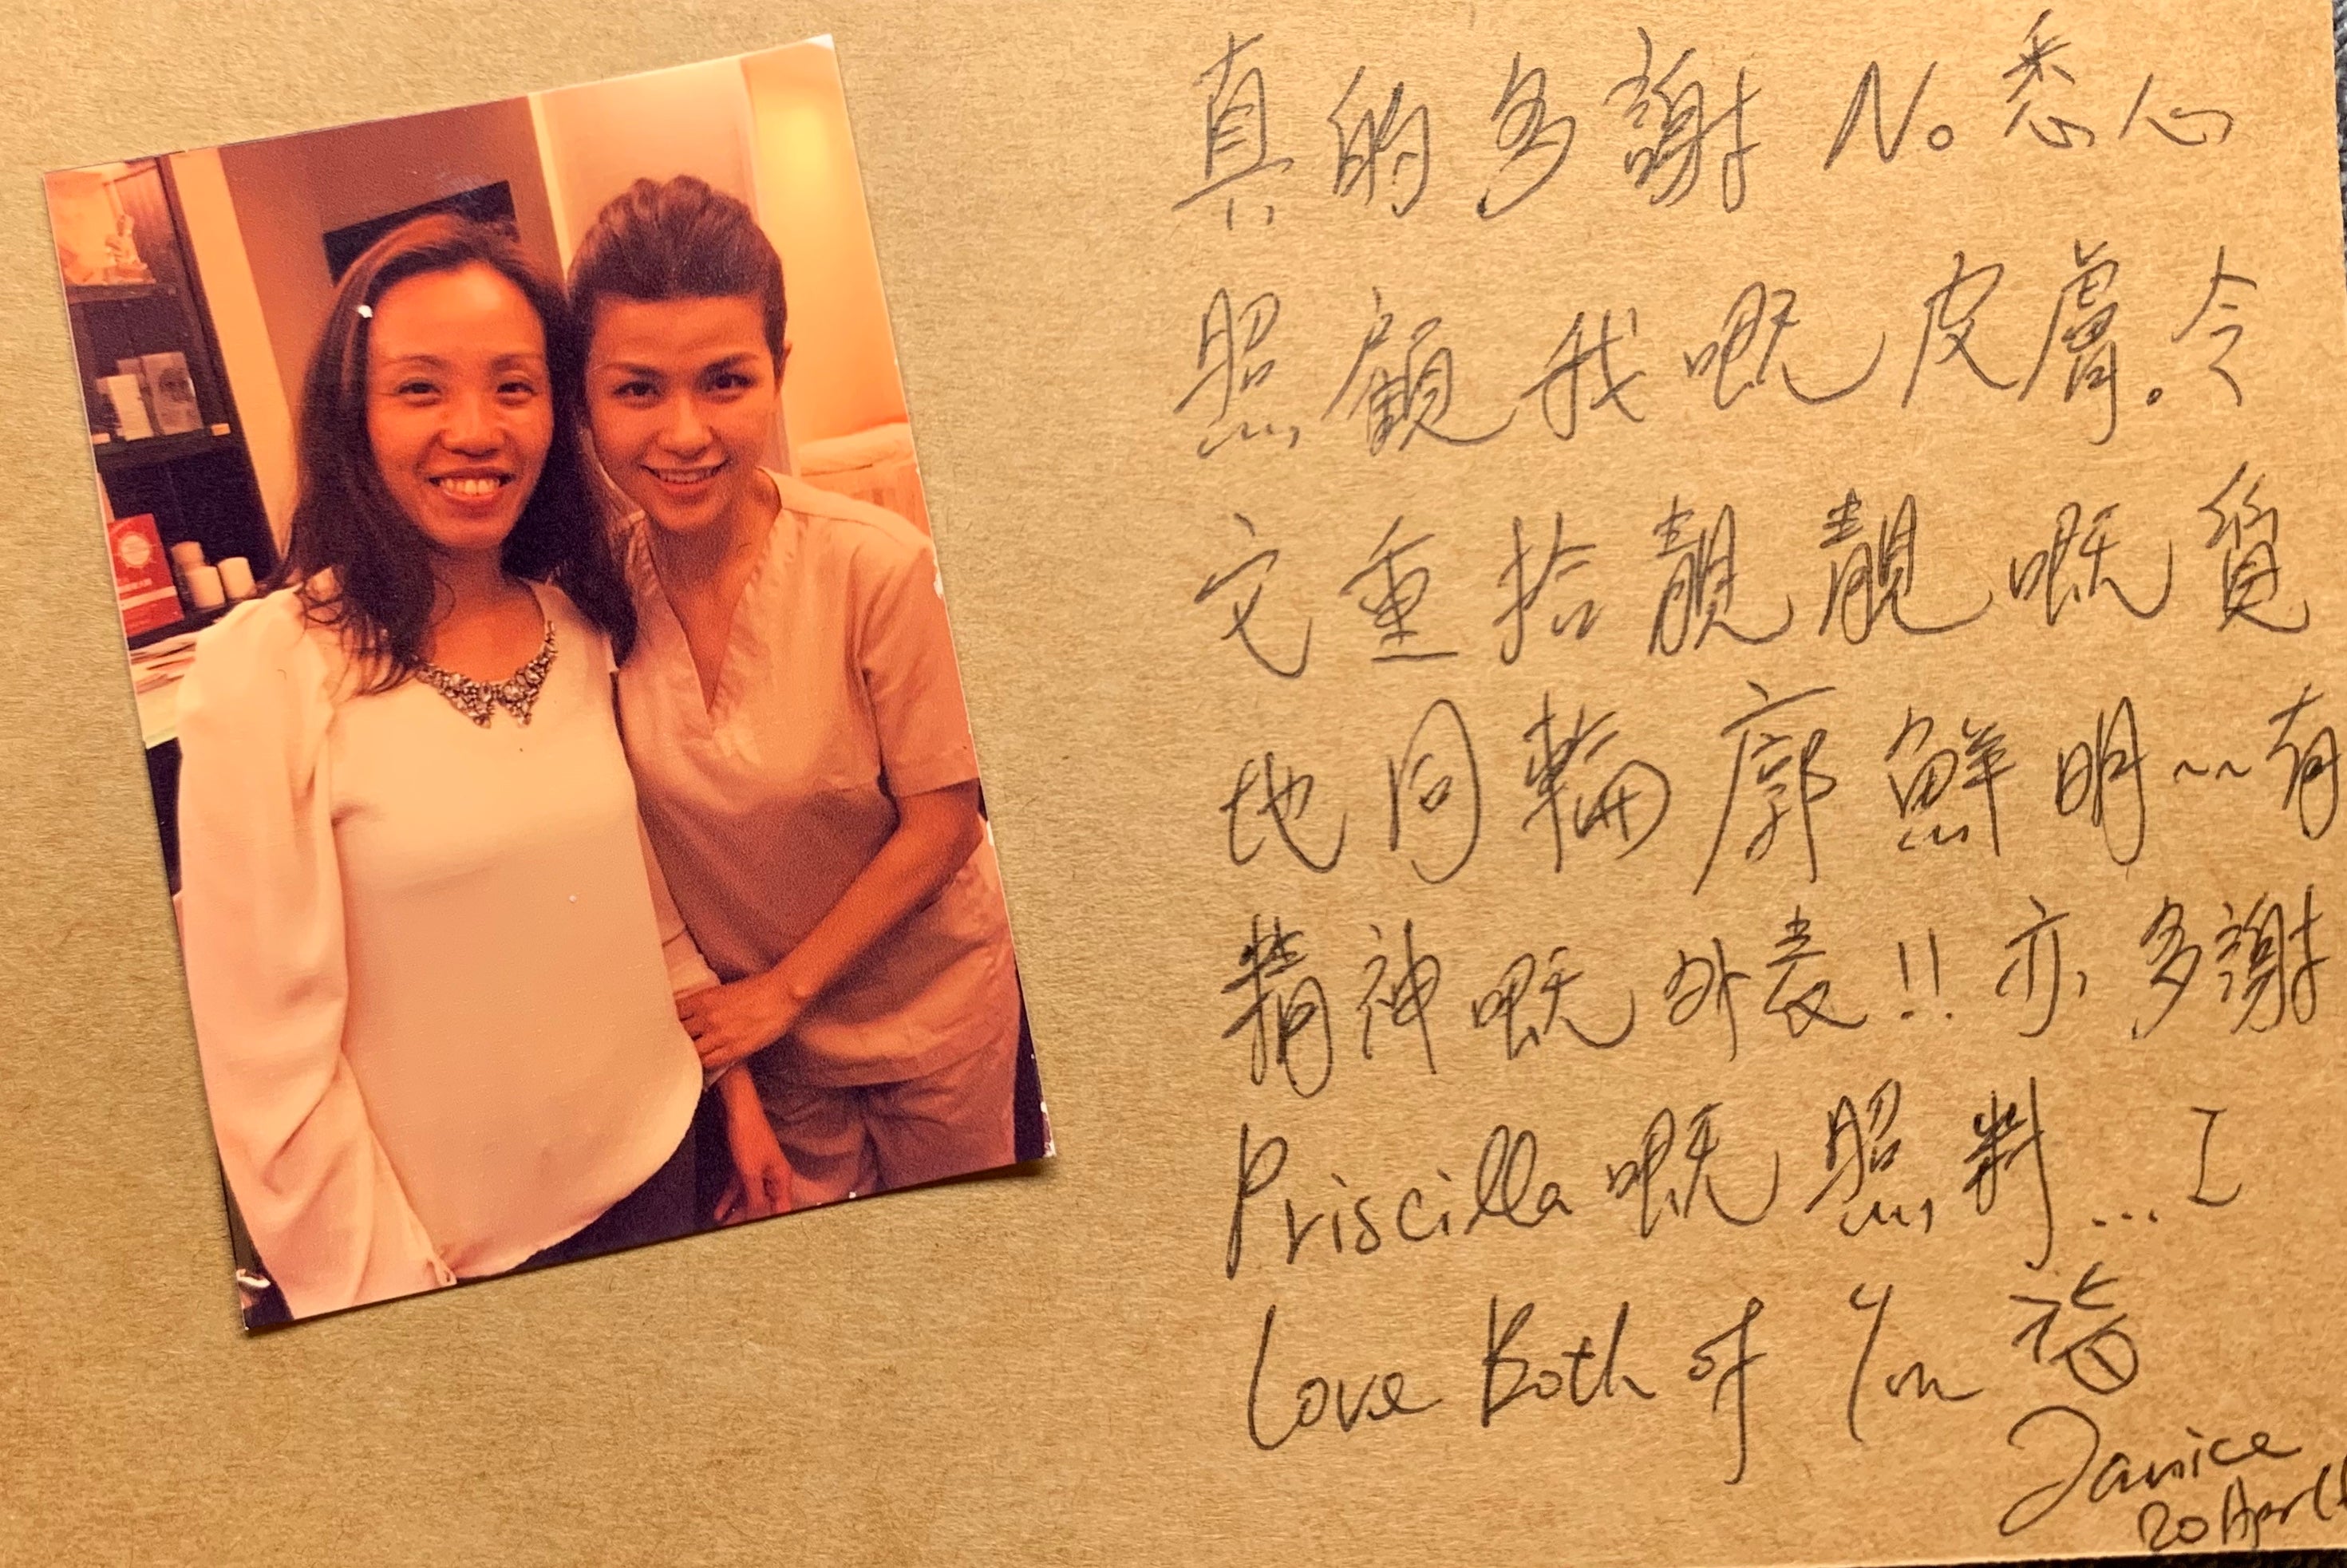 真的多謝 No 悉心
照顧我嘅皮膚。令
它重拾靚靚嘅質
地同輪廓鮮明~~有
精神嘅外表!! 亦多謝
Priscilla 嘅照料... I
Love Both of You
Janice
20 April